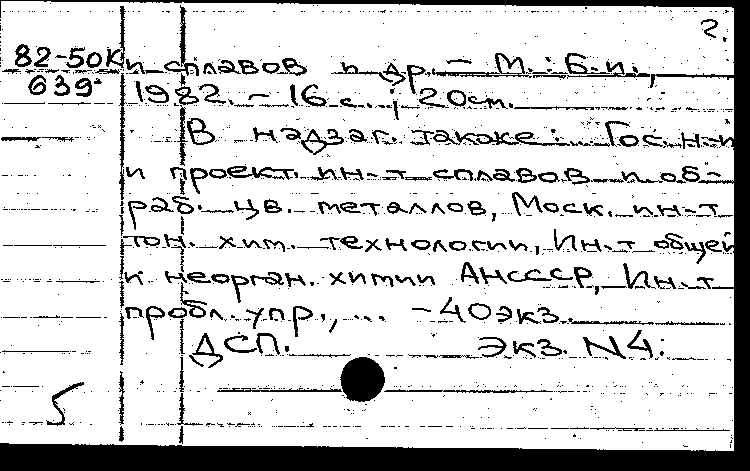 2.
82-50К и сплавов и др. – М.: Б.и.,
639 1982. – 16 с. ; 20 см.
В надзаг. также: Гос. н.-и
и проект. ин-т сплавов и об-
раб. цв. металлов, Моск. ин-т
тон. хим. технологии, Ин-т общей
и неорган. химии АНСССР, Ин-т
пробл. упр., ... – 40 экз.
ДСП. Экз. N4:
5